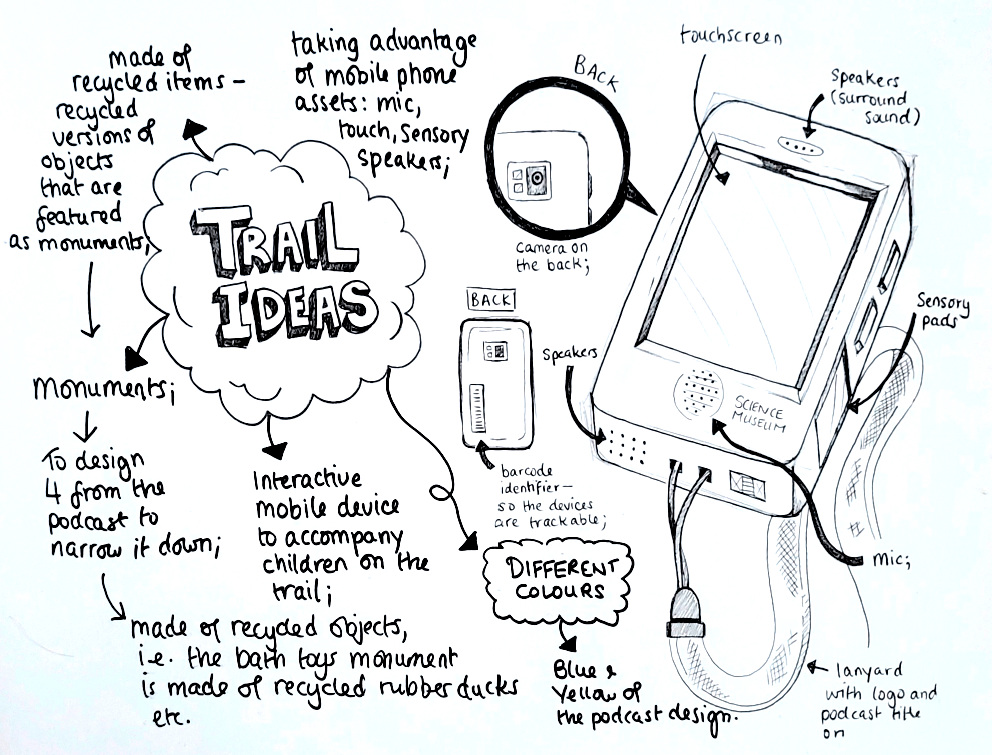 made of
recycled items -
recycled
versions of
objects
that are
featured
as monuments;
taking advantage
of mobile phone
assets: mic,
touch, sensory
speakers;
BACK
camera on
the back;
touchscreen
speakers
(surround
sound)
TRAIL
IDEAS
BACK
speakers
Sensory
pads
SCIENCE
MUSEUM
barcode
identifier -
so the devices
are trackable;
mic;
Monuments;
To design
4 from the
podcast to
narrow it down;
made of recycled objects,
i.e. the bath toys monument
is made of recycled rubber ducks
etc.
Interactive
mobile device
to accompany
children on the
trail;
DIFFERENT
COLOURS
Blue &
Yellow of
the podcast design.
lanyard
with logo and
podcast title
on